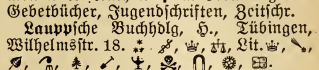 Gebetbücher, Jugendschriften, Zeitschr.
Lauppsche Buchholg, H., Tübingen,
Wilhelmsstr. 18. Lit.